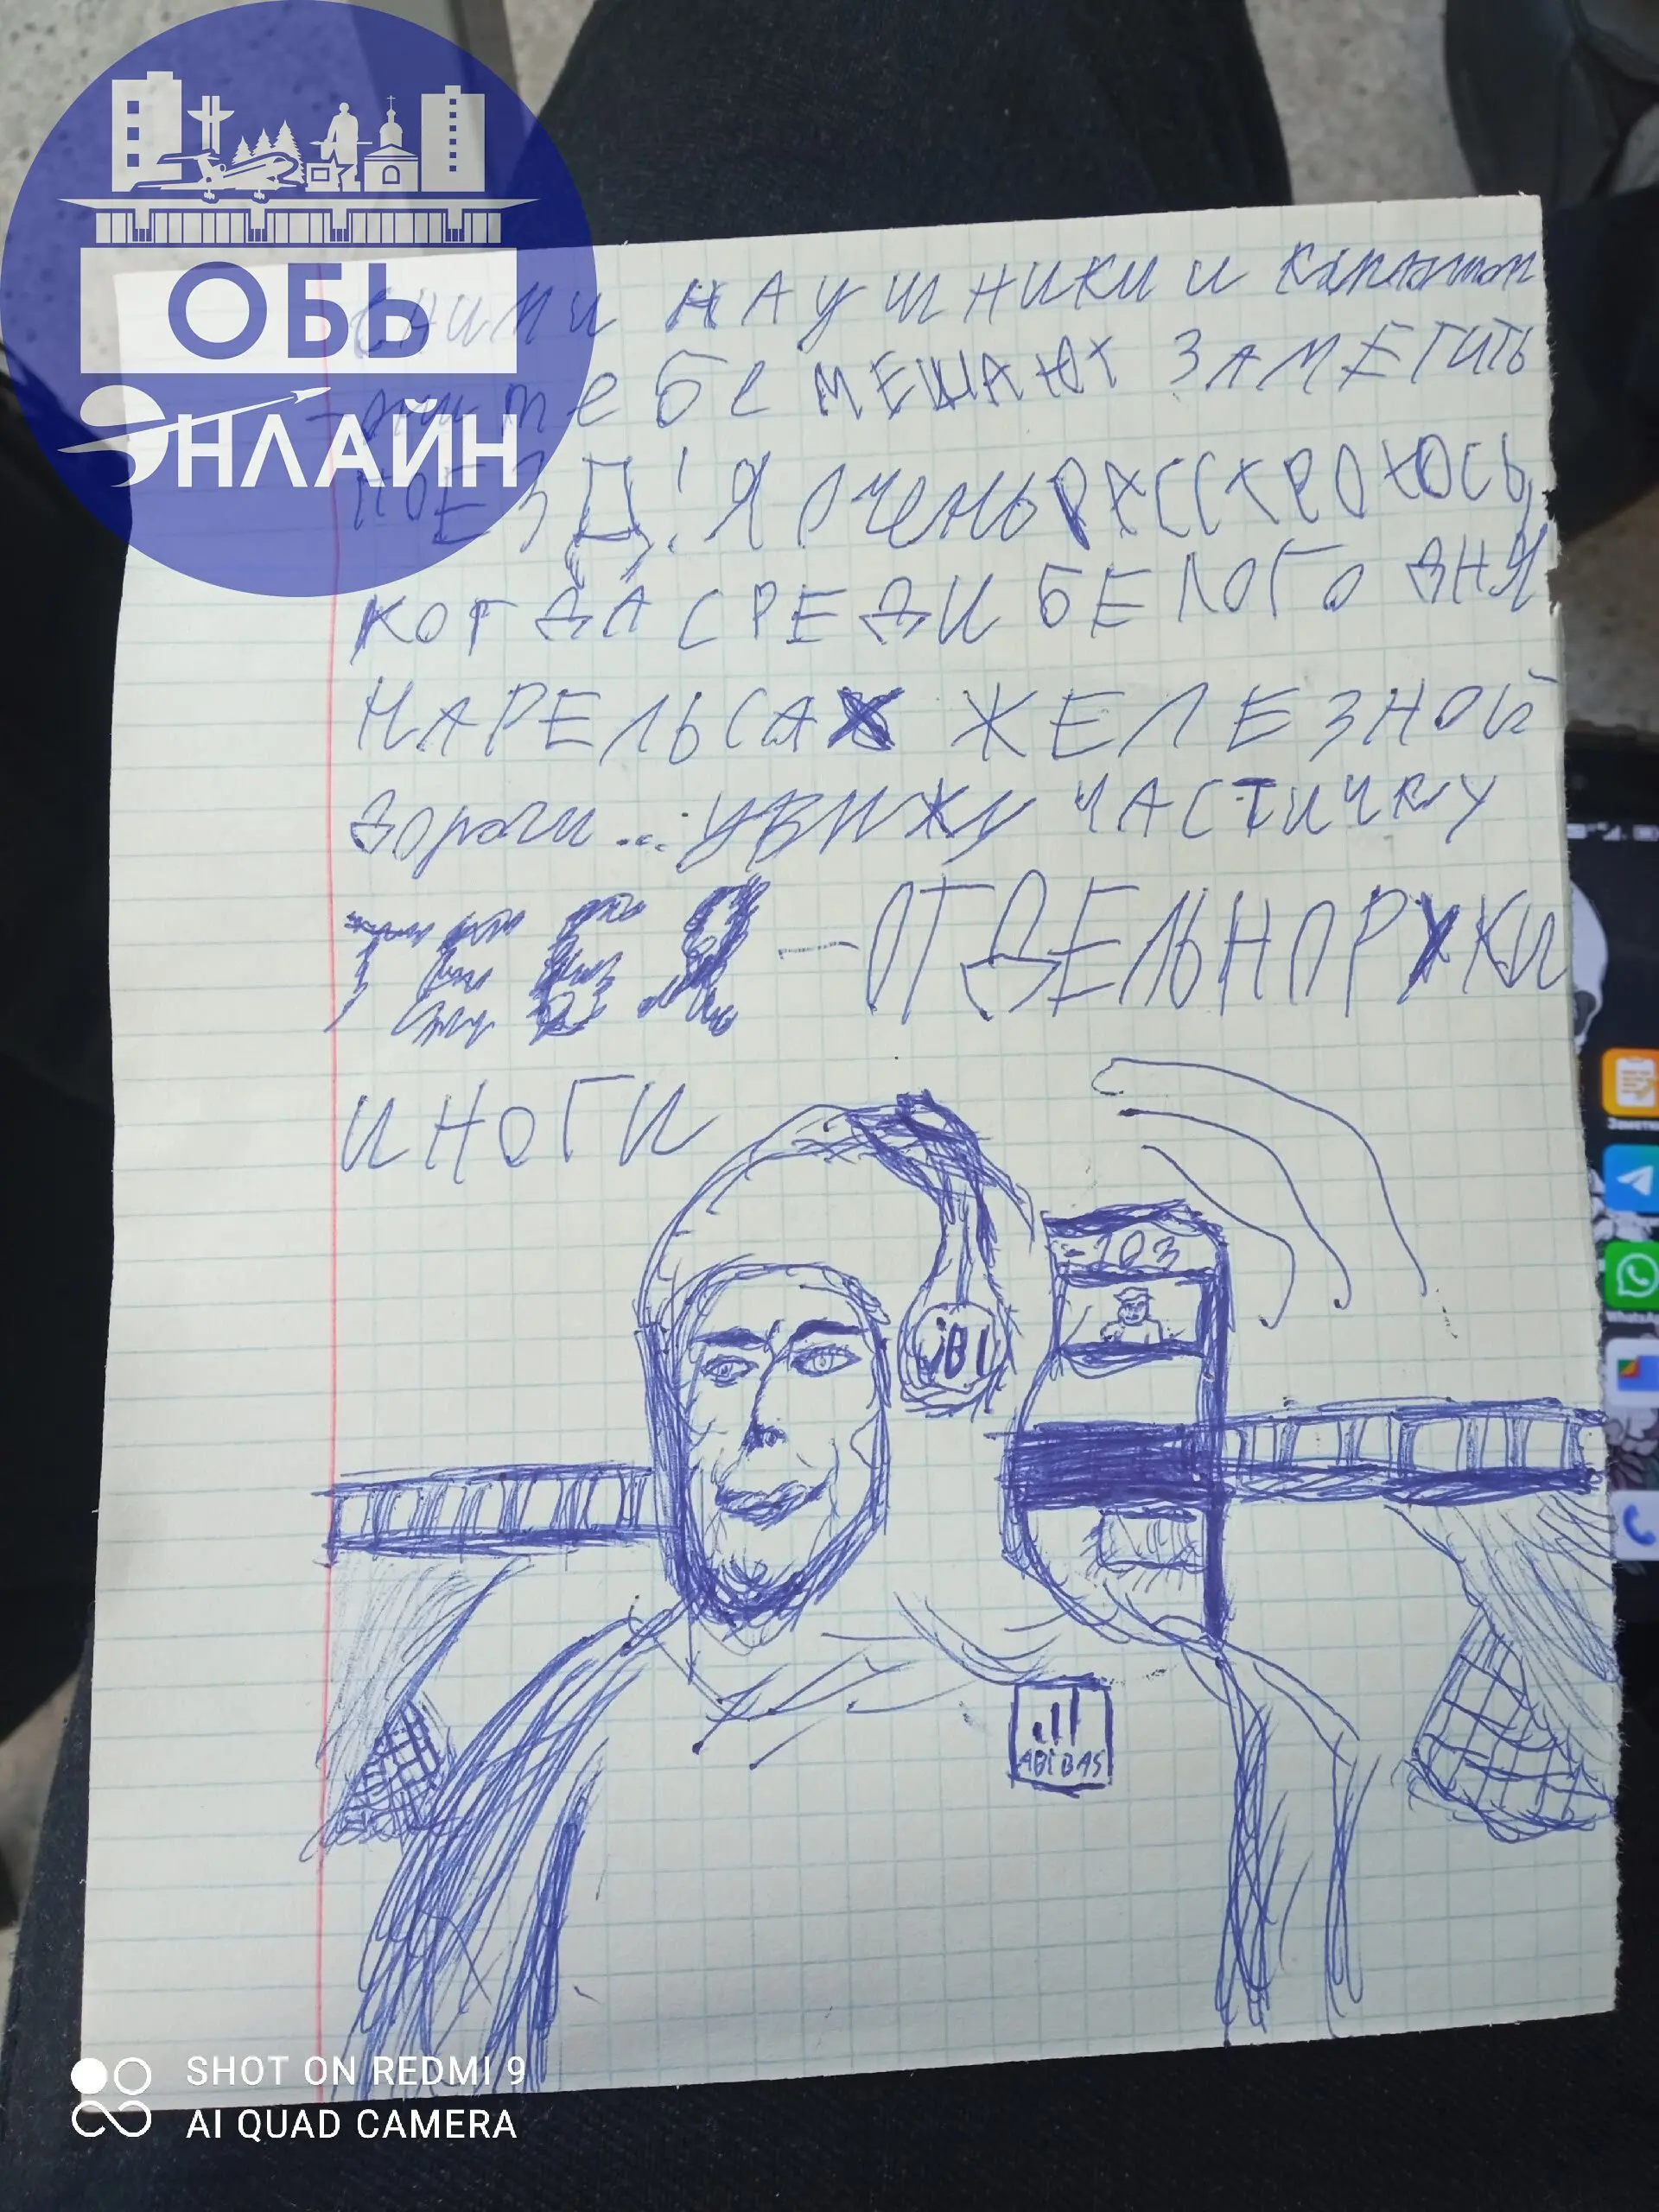 ОБЬ
ЭНЛАЙН
СНИМИ НАУШНИКИ И КАПЮШОН
-ОНИ ТЕБЕ МЕШАЮТ ЗАМЕТИТЬ
ПОЕЗД! Я ОЧЕНЬ РАССТРОЮСЬ,
КОГДА СРЕДИ БЕЛОГО ДНЯ
НА РЕЛЬСАХ ЖЕЛЕЗНОЙ
дороги... УВИЖУ ЧАСТИЧКУ
ТЕБЯ - ОТДЕЛЬНО РУКИ
И НОГИ
103
JBl
ABIBAS
Заметки
SHOT ON REDMI 9
AI QUAD CAMERA